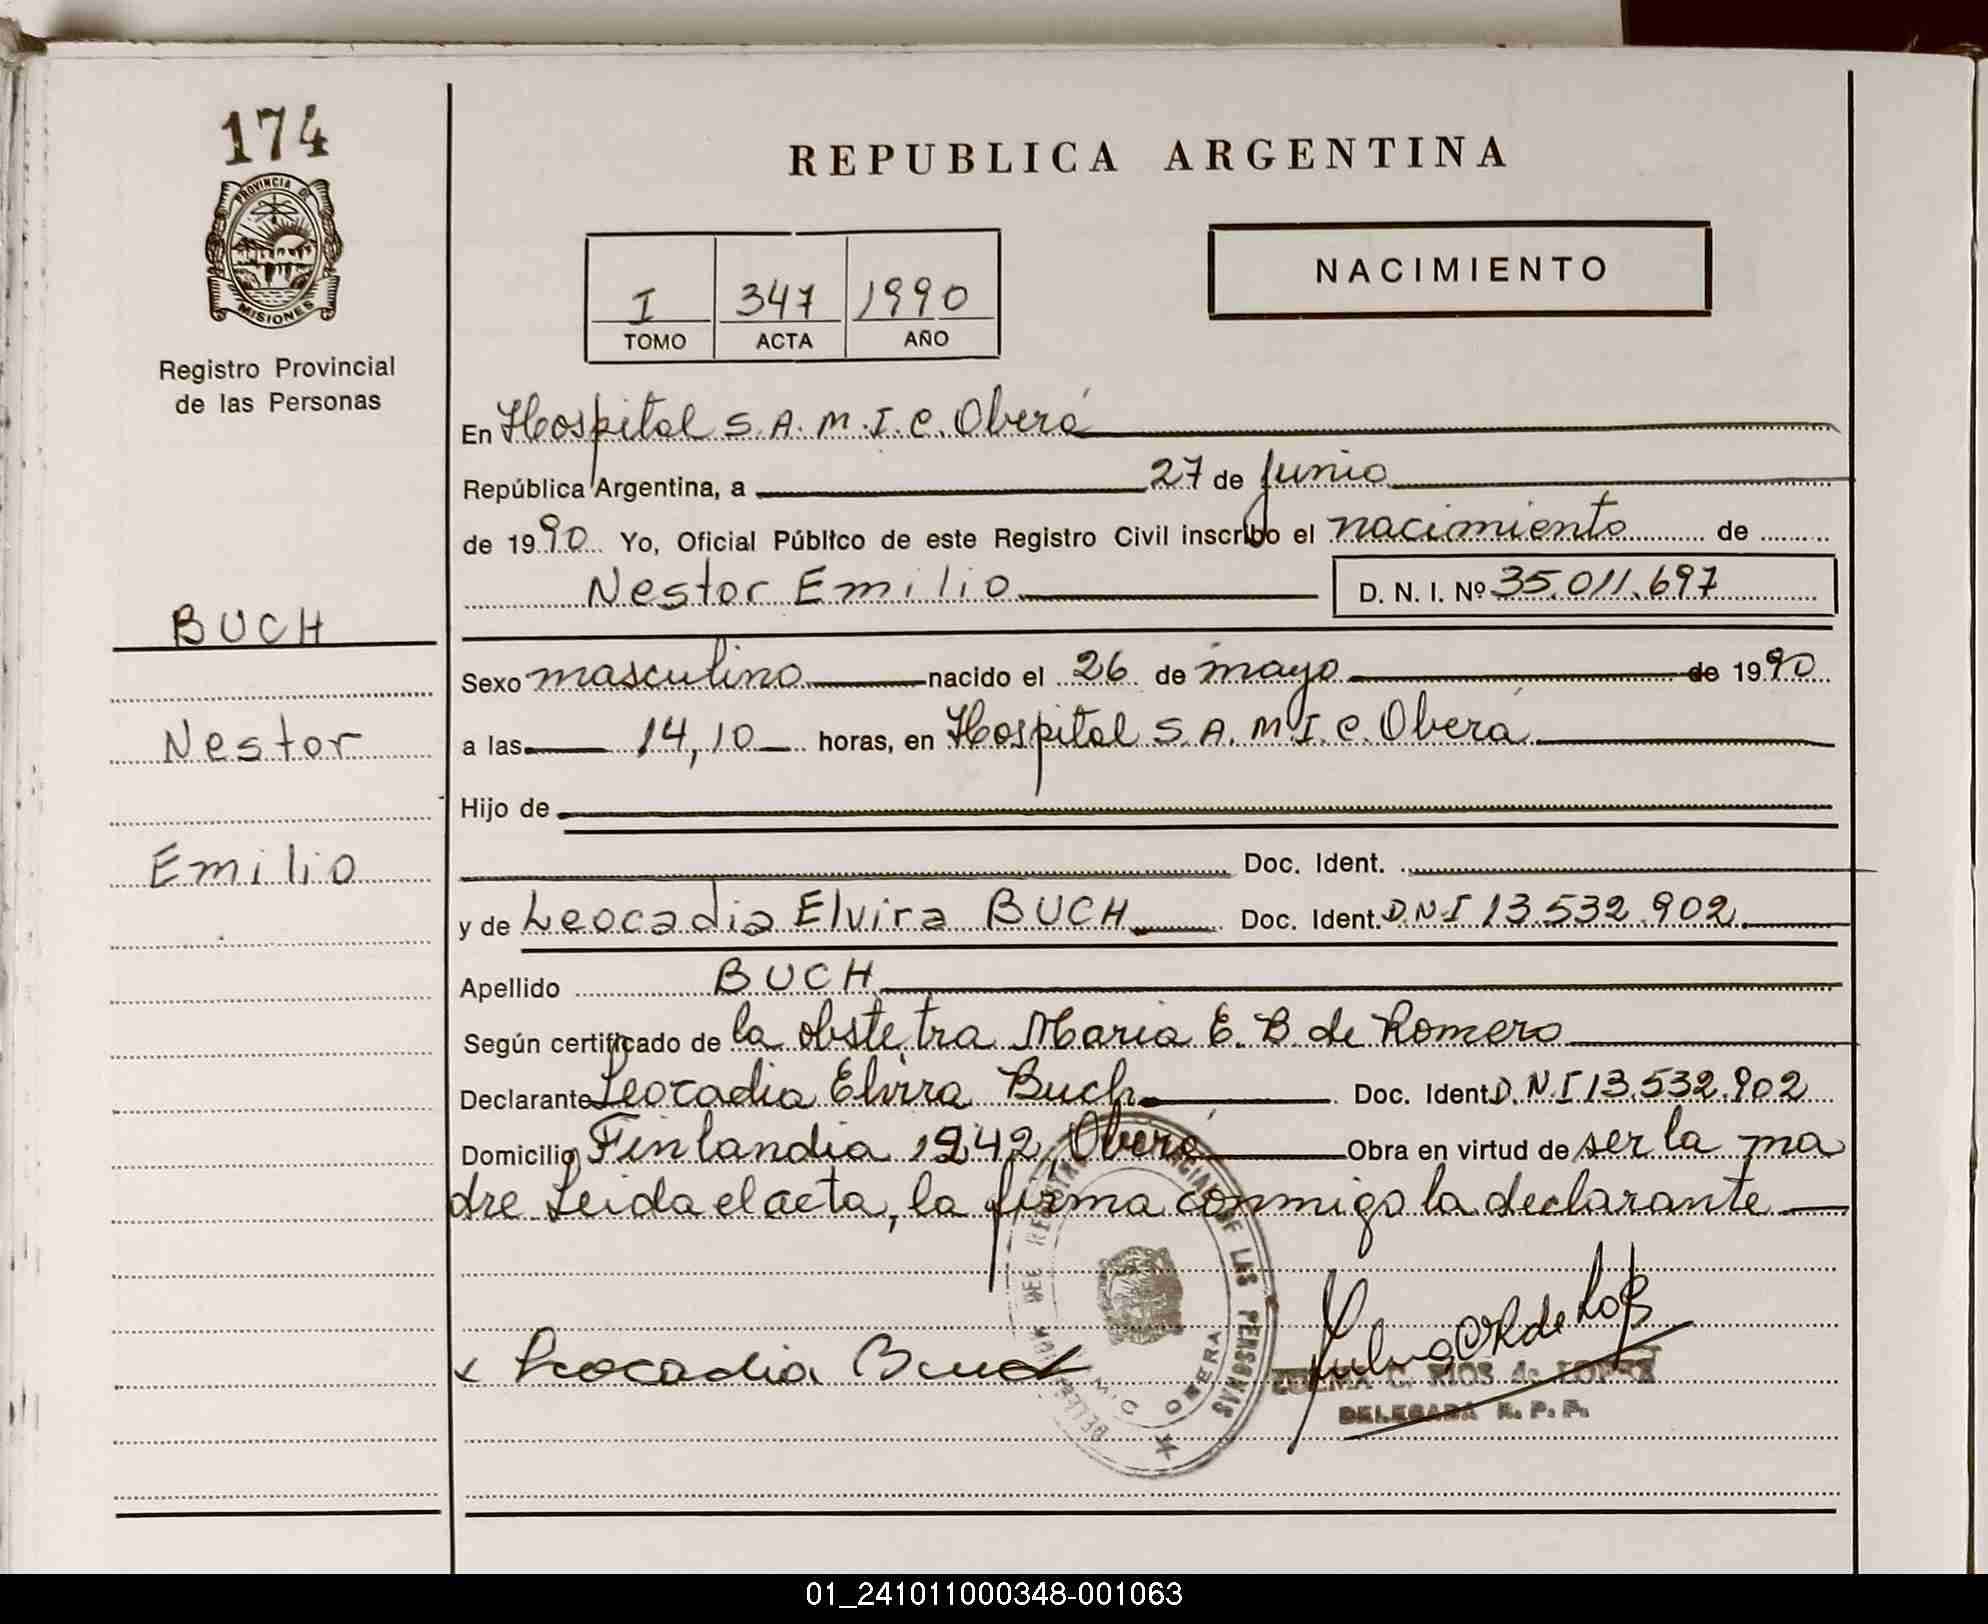 174
PROVINCIA DE
MISIONES
Registro Provincial
de las Personas
BUCH
Nestor
Emilio
REPUBLICA ARGENTINA
I 347 1990
TOMO ACTA AÑO
NACIMIENTO
En Hospital S.A.M.I.C. Oberá
República Argentina, a 27 de Junio
de 1990 Yo, Oficial Público de este Registro Civil inscribo el nacimiento de
Nestor Emilio D. N. I. Nº 35.011.697
Sexo masculino nacido el 26 de mayo de 1990
a las 14,10 horas, en Hospital S.A.M.I.C. Oberá
Hijo de
Doc. Ident.
y de Leocadia Elvira BUCH Doc. Ident. D.N.I 13.532.902
Apellido BUCH
Según certificado de la obstetra Maria E. B. de Romero
Declarante Leocadia Elvira Buch Doc. Ident. D.N.I 13.532.902
Domicilio Finlandia 1242, Oberá Obra en virtud de ser la ma
dre Leida el acta, la firma conmigo la declarante
DEL REGISTRO PROVINCIAL DE LAS PERSONAS
OBERA
x Leocadia Buch
ZULMA C. RIOS de LOPEZ
DELEGADA R. P. P.
01_241011000348-001063